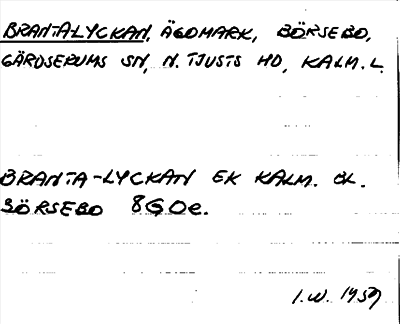 BRANTALYCKAN, ÄGOMARK, BÖRSEBO,
GÄRDSERUMS SN, N. TJUSTS HD, KALM. L.
BRANTA-LYCKAN EK KALM. ÖL.
BÖRSEBO 8G0e.
I.W. 1959